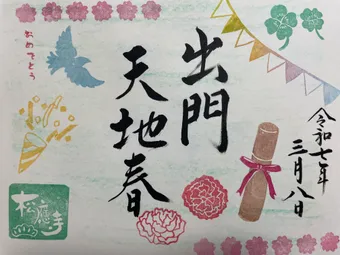 出門
天地春
令和七年
三月八日
おめでとう
松應寺